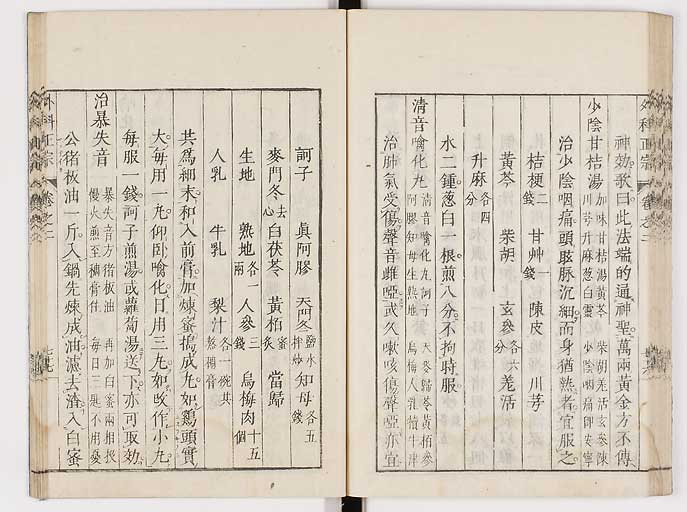 神効歌曰此法端的通神聖萬兩黃金方不傳
少陰甘桔湯 加味甘桔湯黃芩 柴胡羌活玄參陳
川芎升麻葱白靈 少陰咽痛即安寧
治少陰咽痛頭眩脉沉細而身猶熱者宜服之
桔梗二錢 甘艸一錢 陳皮 川芎
黃芩 柴胡 玄參各六分 羌活
升麻各四分
水二鍾葱白一根煎八分不拘時服
清音噙化丸 清音噙化丸訶子 天冬歸苓黃栢參
阿膠知母生熟地 烏梅人乳犢牛津
治肺氣受傷聲音雌啞或久嗽咳傷聲啞亦宜
外科正宗 卷之二
訶子 眞阿膠 天門冬鹽水拌炒 知母各五錢
麥門冬去心 白茯苓 黃栢蜜炙 當歸
生地 熟地各一兩 人參三錢 烏梅肉十五個
人乳 牛乳 梨汁各一碗共熬稠膏
共爲細末和入前膏加煉蜜搗成丸如鷄頭實
大每用一丸仰卧噙化日用三丸如改作小丸
每服一錢訶子煎湯或蘿蔔湯送下亦可取効
治暴失音 暴失音方猪板油 再加白蜜兩相投
慢火煎至稠膏什 每日三匙不用憂
公猪板油一斤入鍋先煉成油濾去渣入白蜜
外科正宗 卷之二